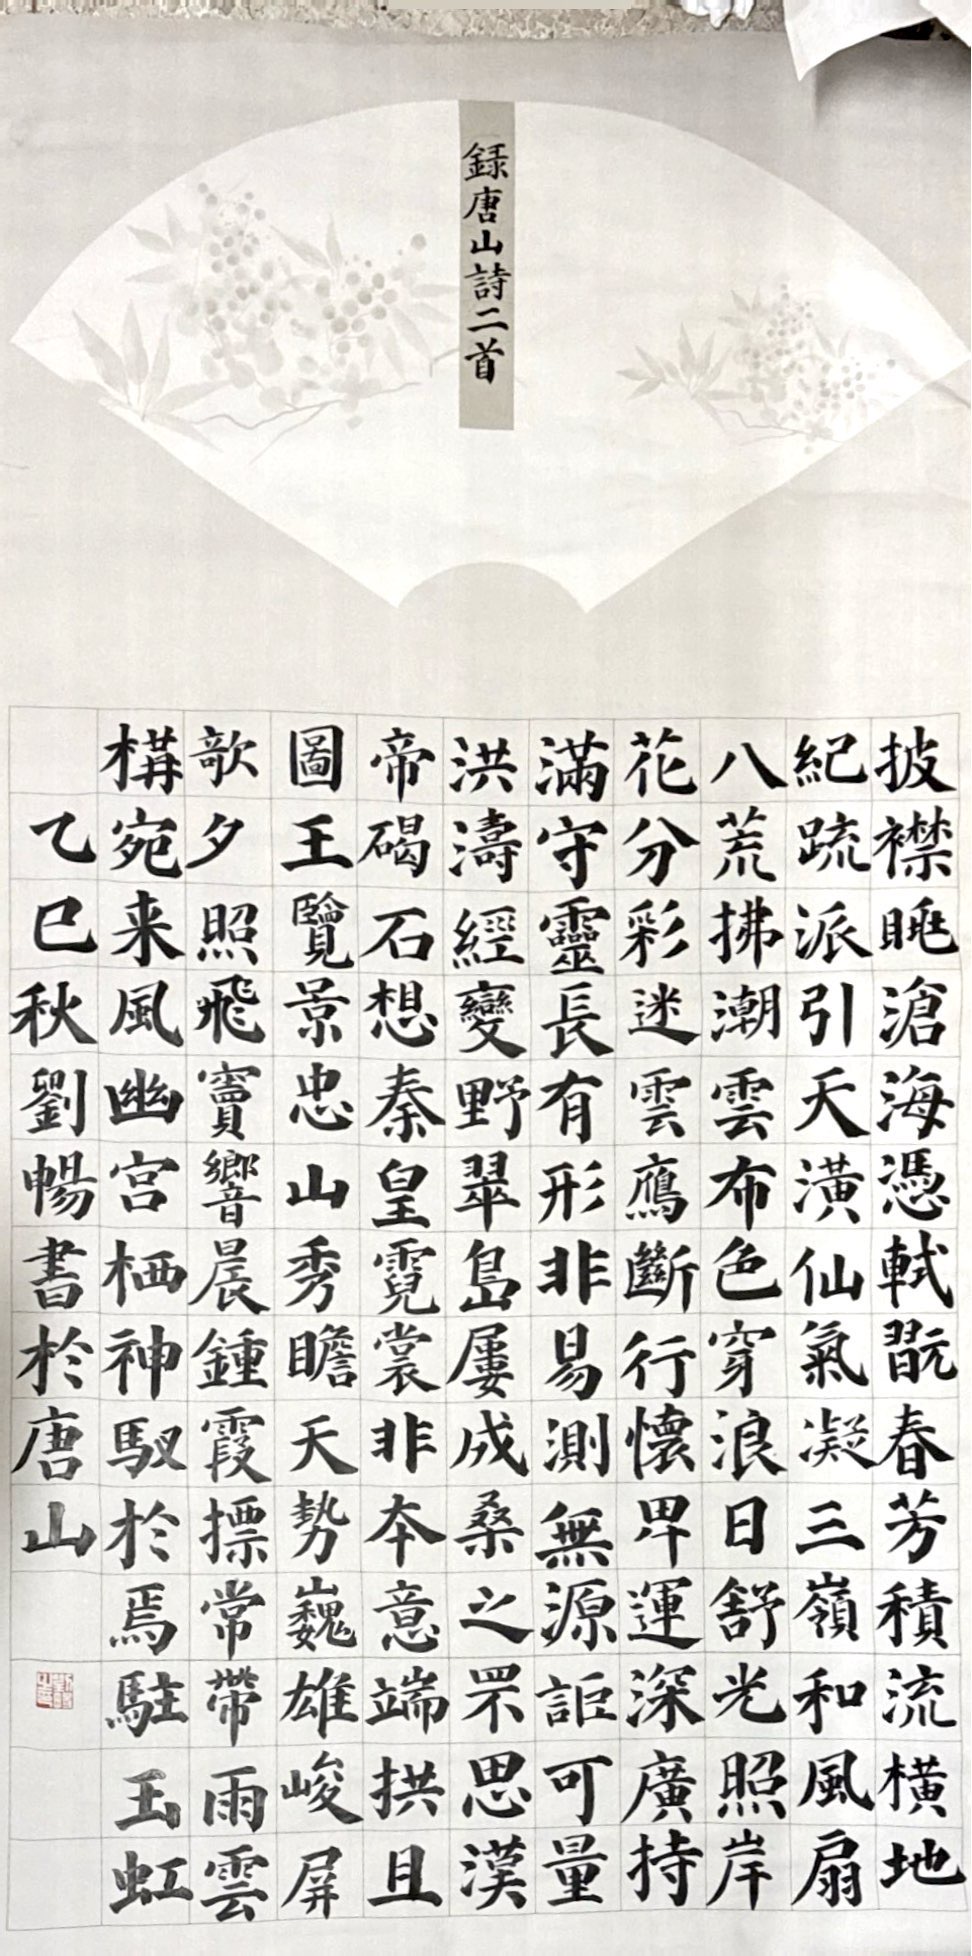 録唐山詩二首
披襟眺滄海憑軾翫春芳積流横地
紀疏派引天潢仙氣凝三嶺和風扇
八荒拂潮雲布色穿浪日舒光照岸
花分彩迷雲鴈斷行懷卑運深廣持
滿守靈長有形非易測無源詎可量
洪濤經變野翠島屢成桑之罘思漢
帝碣石想秦皇霓裳非本意端拱且
圖王覽景忠山秀瞻天勢巍雄峻屏
歊夕照飛竇響晨鍾霞摽常帶雨雲
構宛来風幽宮栖神馭於焉駐玉虹
乙巳秋劉暢書於唐山